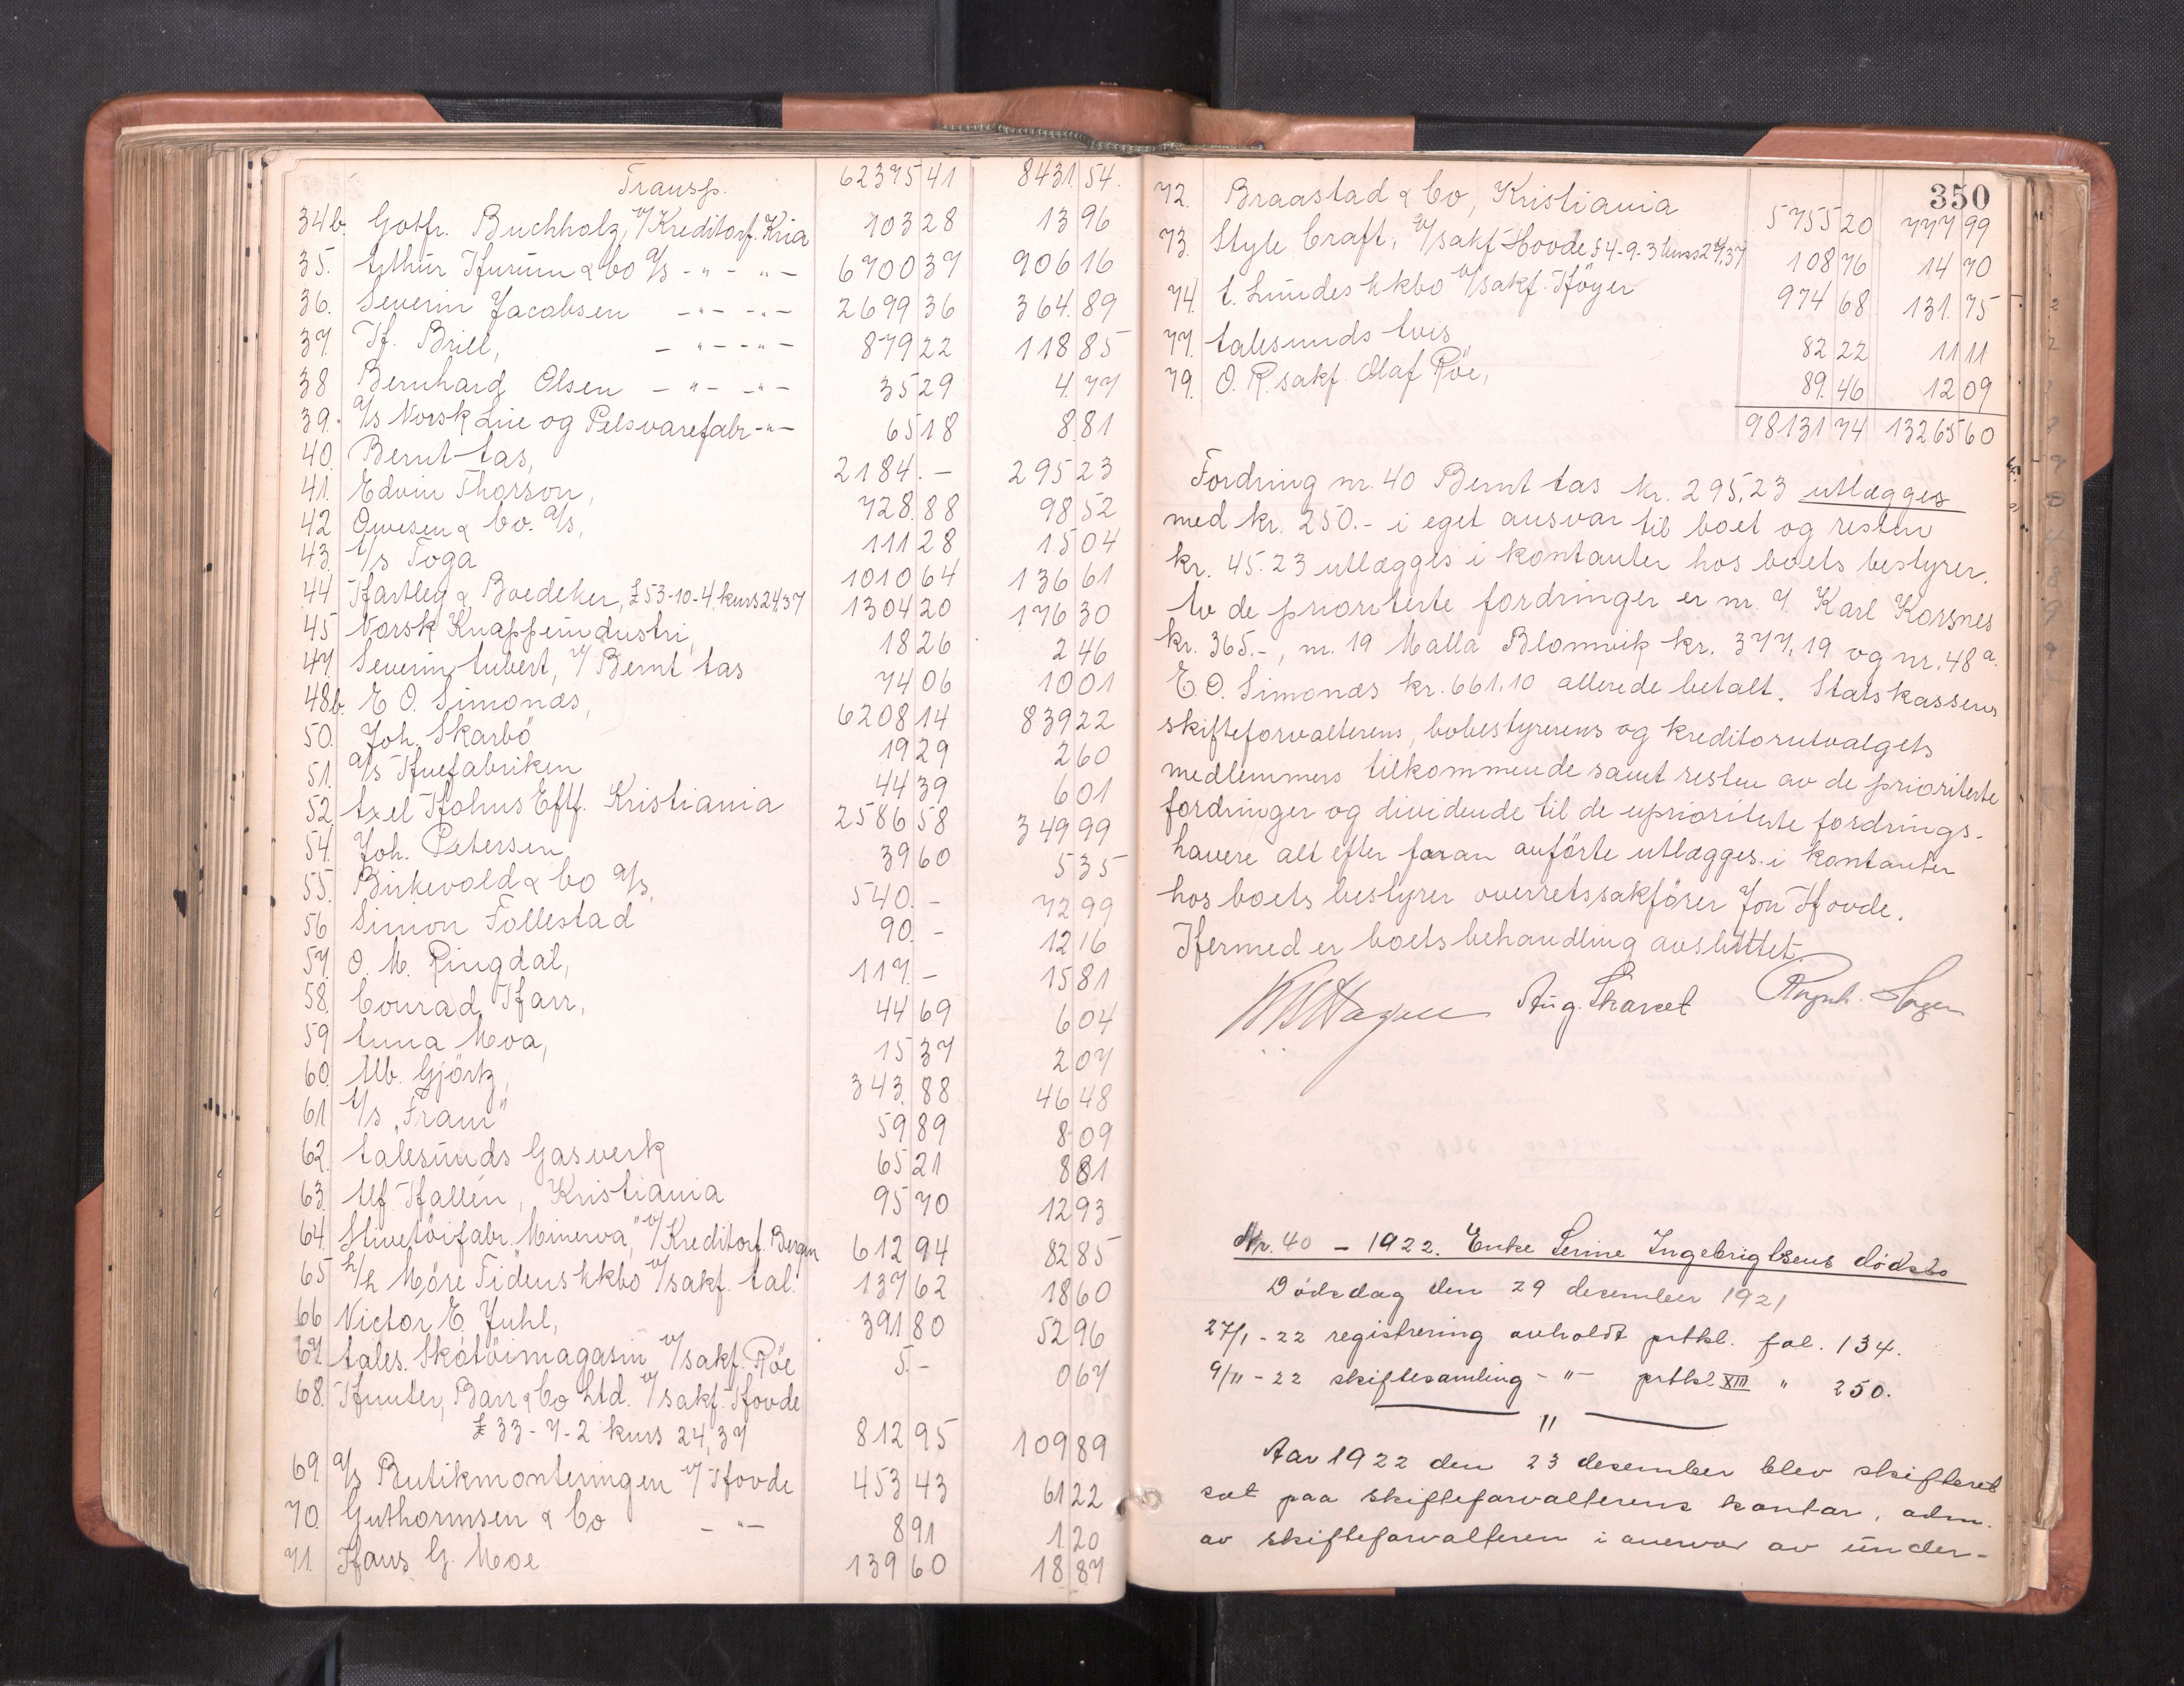 Transp. 62375 41 8431 54.
34b. Gotfr. Buchholz, v/Kreditorf. Kria 103 28 13 96
35. Arthur Hurum & Co A/s - " - " - 6700 37 906 16
36. Severin Jacobsen - " - " - 2699 36 364. 89
37. H. Brill, - " - " - 879 22 118 85
38 Bernhard Olsen - " - " - 35 29 4. 77
39. A/s Norsk Lue og Pelsvarefabr - " - 65 18 8 81
40. Bernt Aas, 2184. - 295 23
41. Edvin Thorson, 728. 88 98 52
42 Owesen & Co. A/s, 111 28 15 04
43. A/s Toga 1010 64 136 61
44 Hartley & Boedeker, £ 53-10-4, kurs 24.37 1304 20 176 30
45 Norsk Knappeindustri, 18 26 2 46
47. Severin Aubert, v/ Bernt Aas 74 06 10 01
48b. E. O. Simonæs, 6208 14 839 22
50. Joh. Skarbö 19 29 2 60
51. A/s Huefabriken 44 39 6 01
52 Axel Hohns Eftf. Kristiania 2586 58 349 99
54. Joh. Petersen 39 60 5 35
55. Birkevold & Co A/s, 540. - 72 99
56 Simon Follestad 90. - 12 16
57. O. M. Ringdal, 117. - 15 81
58. Conrad Harr, 44 69 6 04
59 Anna Moa, 15 37 2 07
60. Alb. Gjörtz, 343. 88 46 48
61 A/s "Fram" 59 89 8 09
62. Aalesunds Gasverk 65 21 8 81
63. Alf Hallén, Kristiania 95 70 12 93
64. Stivetöifabr. "Minerva," v/Kreditorf. Bergen 612 94 82 85
65 h/l Möre Tidens hkbo v/sakf. Aal. 137 62 18 60
66 Victor E. Juhl, 391 80 52 96
67. Aales. Skotöimagasin v/sakf. Röe 5. - 0 67
68. Hunter, Barr & Co Ltd. v/sakf. Hovde
£ 33-7-2 kurs 24,37 812 95 109 89
69. A/s Butikmonteringen v/ Hovde 453 43 61 22
70. Guthormsen & Co - " - 8 91 1 20
71. Hans G. Moe 139 60 18 87
350
72. Braastad & Co, Kristiania 5755 20 777 99
73. Style Craft, v/sakf Hovde £ 4-9-3 kurs 24,37 108 76 14 70
74. A. Lundes hkbo v/sakf. Höyer 974 68 131. 75
77. Aalesunds Avis, 82 22 11 11
79. O. R. sakf. Olaf Röe, 89. 46 12 09
98131 74 13265 60
Fordring nr. 40 Bernt Aas kr. 295,23 utlægges
med kr. 250.- i eget ansvar til boet og resten
kr. 45.23 utlægges i kontanter hos boets bestyrer.
Av de prioriterte fordringer er nr. 7. Karl Korsnes
kr. 365.-, nr. 19 Malla Blomvik kr. 377,19 og nr. 48 a.
E. O. Simonæs kr. 661,10 allerede betalt. Statskassens
skifteforvalterens, bobestyrerens og kreditorutvalgets
medlemmers tilkommende samt resten av de prioriterte
fordringer og dividende til de uprioriterte fordrings-
havere alt efter foran anförte utlægges i kontanter
hos boets bestyrer overretssakförer Jon Hovde.
Hermed er boets behandling avsluttet.
Aug. Skaret
Nr. 40 - 1922. Enke Serine Ingebrigtsens dødsbo
Dödsdag den 29 desember 1921
27/1 - 22 registrering avholdt prtkl. fol. 134.
9/11 - 22 skiftesamling - " - prtkl XIII " 250.
"
Aar 1922 den 23 desember blev skifteret
sat paa skifteforvalterens kontor, adm.
av skifteforvalteren i nærvær av under-